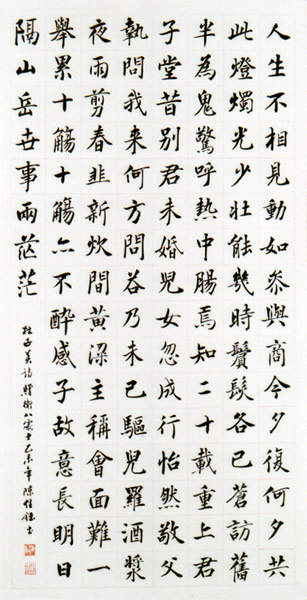 人生不相見動如參與商今夕復何夕共
此燈燭光少壯能幾時鬢髮各已蒼訪舊
半為鬼驚呼熱中腸焉知二十載重上君
子堂昔別君未婚兒女忽成行怡然敬父
執問我來何方問答乃未已驅兒羅酒漿
夜雨剪春韭新炊間黃粱主稱會面難一
舉累十觴十觴亦不醉感子故意長明日
隔山岳世事兩茫茫
杜子美詩贈衛八處士乙未年陳佳書